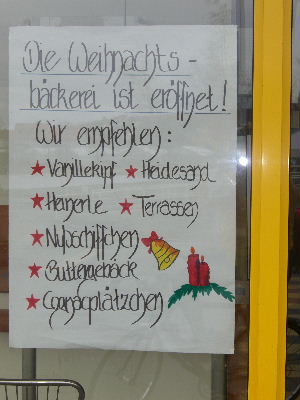 Die Weihnachts-
bäckerei ist eröffnet!
Wir empfehlen:
Vanillekipf Heidesand
Heinerle Terrassen
Nußschiffchen
Buttergebäck
Cognacplätzchen